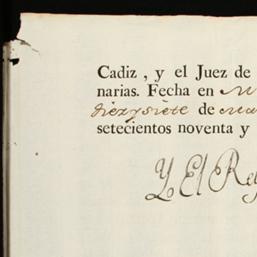 Cadiz , y el Juez de
narias. Fecha en
diez y siete de
setecientos noventa y
Yo El Rey